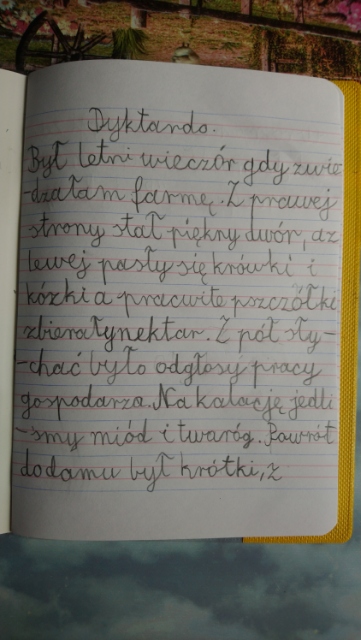 Dyktando.
Był letni wieczór gdy zwie
-dzałam farmę. Z prawej
strony stał piękny dwór, az
lewej pasły się krówki i
kózki a pracwite pszczółki
zbierałynektar. Z pół sły-
-chać było odgłosy pracy
gospodarza. Na kalację jedli
-smy miód i twaróg. Powrót
do damu był krótki, z